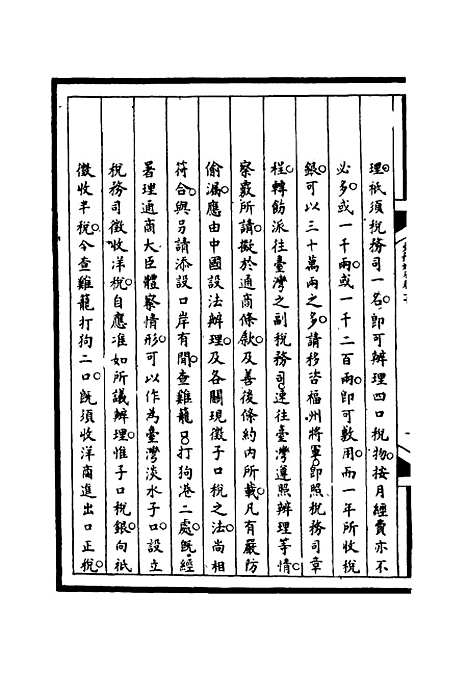 理。祇須稅務司一名。卽可辦理四口稅物。按月經費亦不
必多。或一千兩。或一千二百兩。卽可敷用。而一年所收稅
銀。可以三十萬兩之多。請移咨福州將軍。卽照稅務司章
程。轉飭派往臺灣之副稅務司。速往臺灣遵照辦理等情。
察覈所請。擬於通商條欵。及善後條約內所載。凡有嚴防
偷漏。應由中國設法辦理。及各關現徵子口稅之法。尚相
符合。與另請添設口岸有間。查雞籠口。打狗港二處。旣經
署理通商大臣體察情形。可以作為臺灣淡水子口。設立
稅務司徵收洋稅。自應准如所議辦理。惟子口稅銀。向祇
徵收半稅。今查雞籠打狗二口。旣須收洋商進出口正稅。